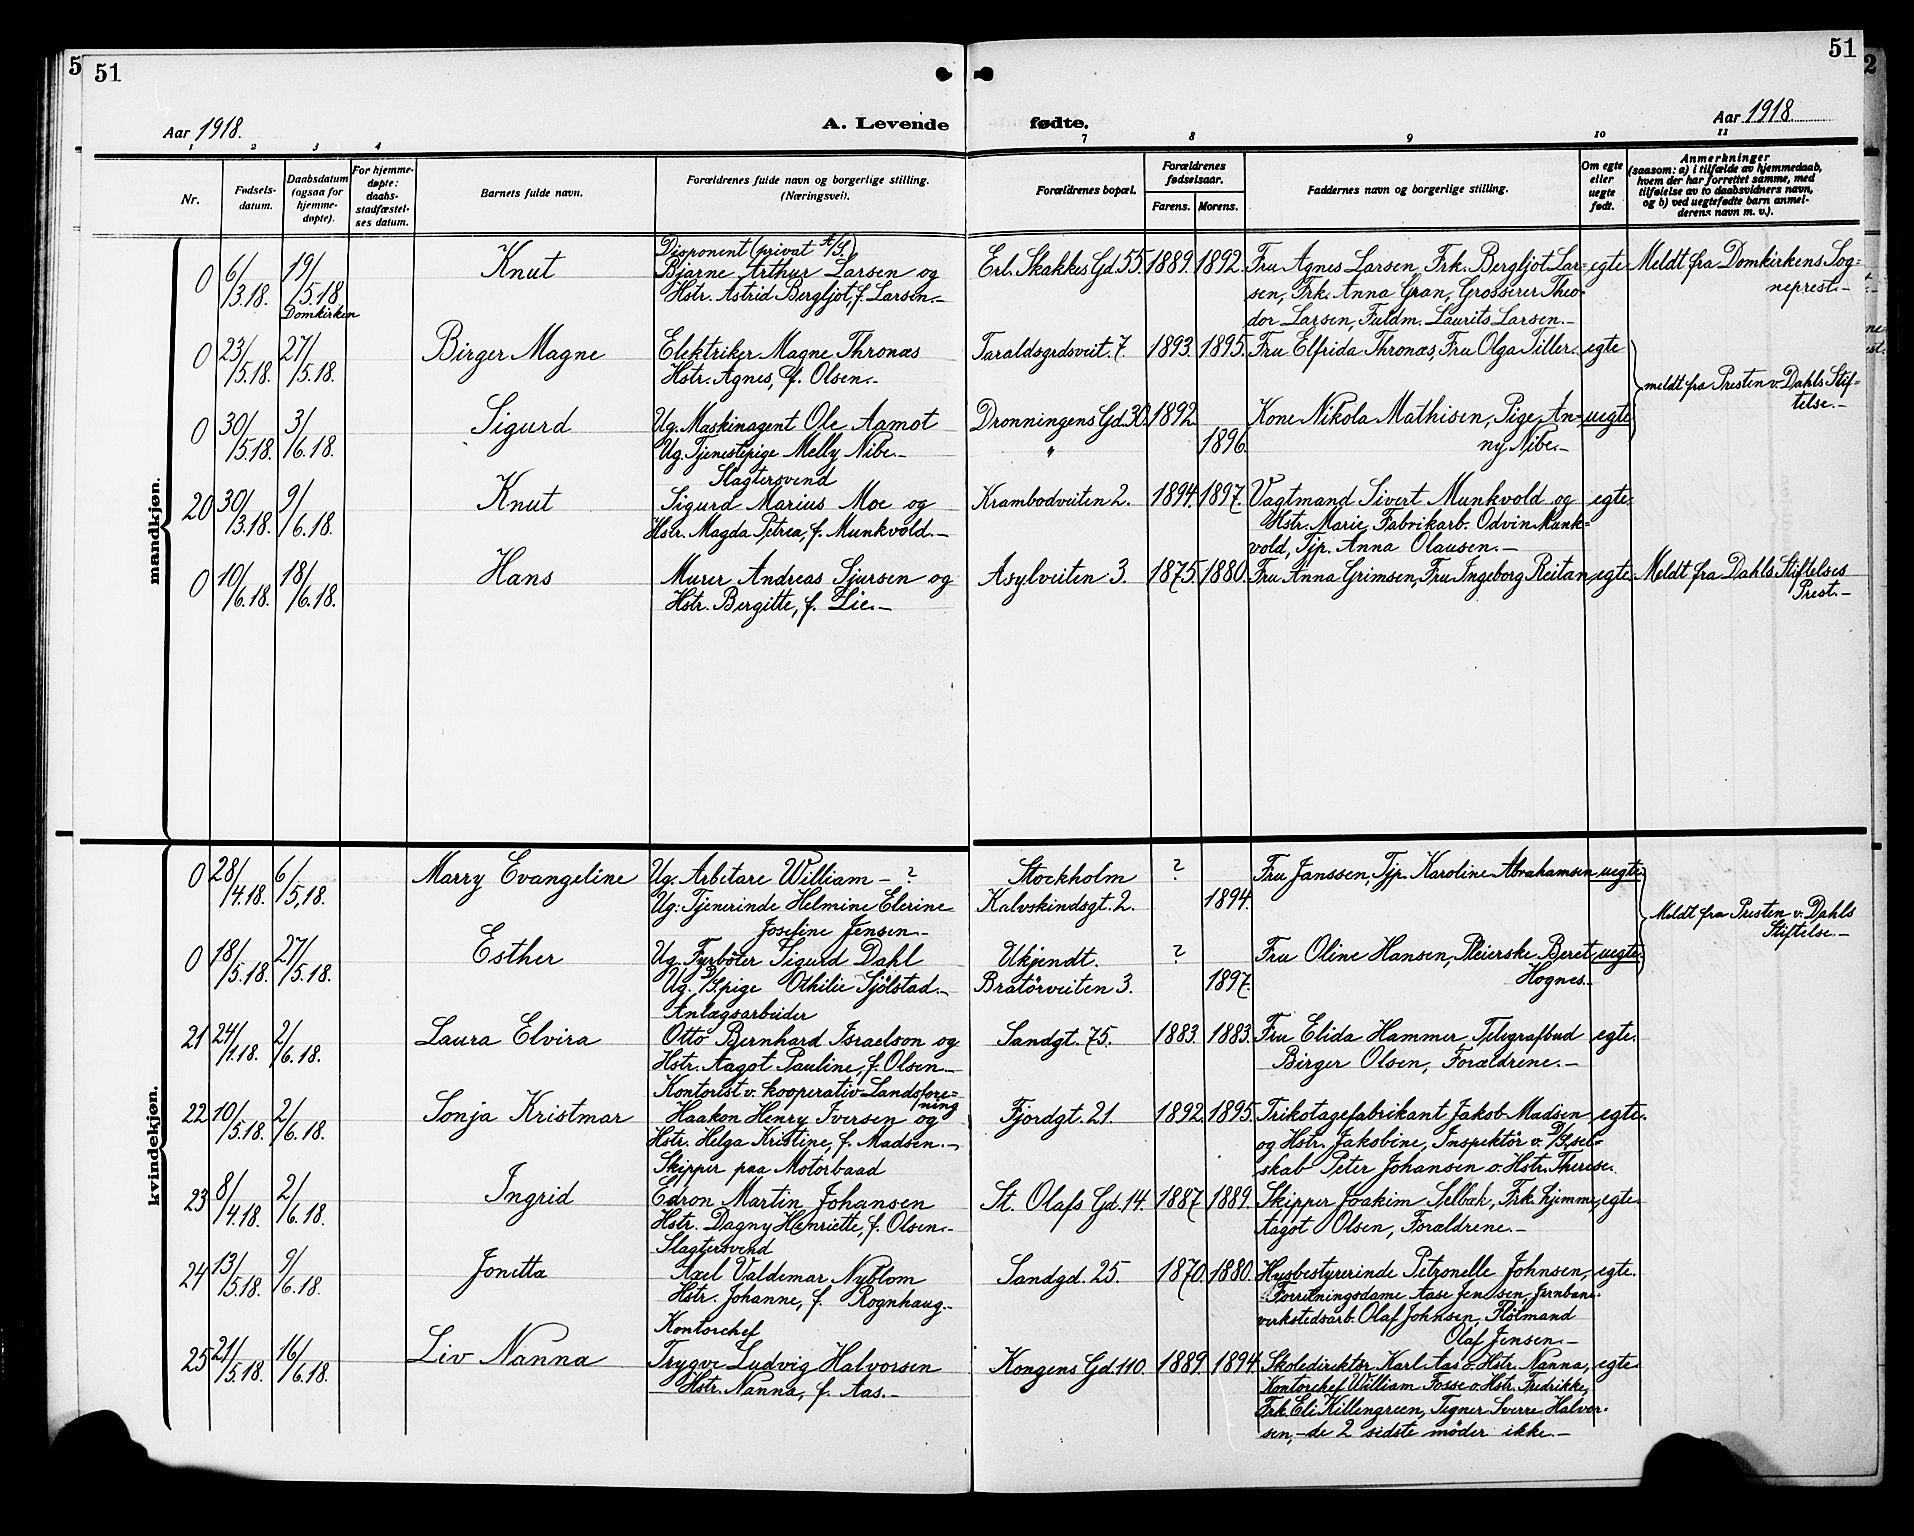 5 51
51
2
Aar 1918.
A. Levende fødte.
Aar 1918
1 2 3 4 7 8 9 10 11
Nr.
Fødsels-
datum.
Daabsdatum
(ogsaa for
hjemme-
døpte).
For hjemme-
døpte:
daabs-
stadfæstel-
ses datum.
Barnets fulde navn.
Forældrenes fulde navn og borgerlige stilling.
(Næringsvei).
Forældrenes bopæl.
Forældrenes
fødselsaar.
Farens. Morens.
Faddernes navn og borgerlige stilling.
Om egte
eller
uegte
født.
Anmerkninger
(saasom: a) i tilfælde av hjemmedaab,
hvem der har forrettet samme, med
tilføielse av to daabsvidners navn,
og b) ved uegtefødte barn anmel-
derens navn m. v.).
mandkjøn.
0 6/3.18. 19/5.18. Domkirken
Knut
Disponent (privat A/S.)
Bjarne Arthur Larsen og
Hstr. Astrid Bergljot, f. Larsen.-
Erl. Skakkes Gd. 55. 1889. 1892.
Fru Agnes Larsen, Frk. Bergljot Lar=
sen, Frk. Anna Gran, Grosserer Theo-
dor Larsen, Fuldm. Laurits Larsen.-
egte.
Meldt fra Domkirkens Sog=
neprest.-
0 23/5.18. 27/5.18.
Birger Magne
Elektriker Magne Thronæs
Hstr. Agnes, f. Olsen.-
Taraldsgrdsveit. 7. 1893. 1895.
Fru Elfrida Thronæs, Fru Olga Tiller.
egte
meldt fra Presten v. Dahls Stif=
telse.-
0 30/5.18. 3/6.18.
Sigurd
Ug. Maskinagent Ole Aamot
Ug. Tjenestepige Melly Nibe.-
Dronningens Gd. 30. 1892.
" 1896.
Kone Nikola Mathisen, Pige An=
ny Nibe.-
uegte
20 30/3.18. 9/6.18.
Knut
Slagtersvend
Sigurd Marius Moe og
Hstr. Magda Petrea, f. Munkvold.-
Krambodveiten 2. 1894. 1897.
Vagtmand Sivert Munkvold og
Hstr. Marie, Fabrikarb. Odvin Munk=
vold, Tjp. Anna Olausen.-
egte.
0 10/6.18. 18/6.18.
Hans
Murer Andreas Sjursen og
Hstr. Bergitte, f. Lie.-
Asylveiten 3. 1875. 1880.
Fru Anna Grimsen, Fru Ingeborg Reitan,
egte.
Meldt fra Dahls Stiftelses
Prest.-
kvindekjøn.
0 28/4.18. 6/5.18.
Marry Evangeline
Ug. Arbetare William - ?
Ug. Tjenerinde Helmine Elerine
Josefine Jensen.-
Stockholm ?
Kalvskindsgt. 2. 1894.
Fru Janssen, Tjp. Karoline Abrahamsen,
uegte.
Meldt fra Presten v. Dahls
Stiftelse.-
0 18/5.18. 27/5.18.
Esther
Ug. Fyrböter Sigurd Dahl
Ug. D/S.pige Othilie Sjölstad.-
Ukjendt. ?
Bratörveiten 3. 1897.
Fru Oline Hansen, Pleierske Beret
Hognes.-
uegte.
21 24/1.18. 2/6.18.
Laura Elvira
Anlægsarbeider
Otto Bernhard Israelson og
Hstr. Aagot Pauline, f. Olsen.-
Sandgt. 75. 1883. 1883.
Fru Elida Hammer, Telegrafbud
Birger Olsen, Forældrene.-
egte.
22 10/5.18. 2/6.18.
Sonja Kristmar
Kontorist v. kooperativ Landsfore=
ning
Haakon Henry Iversen og
Hstr. Helga Kristine, f. Madsen.-
Fjordgt. 21. 1892. 1895.
Trikotagefabrikant Jakob Madsen
og Hstr. Jakobine, Inspektör v. D/S.sel=
skab Peter Johansen o. Hstr. Therese.
egte.
23 8/4.18. 2/6.18.
Ingrid
Skipper paa Motorbaad
Edron Martin Johansen
Hstr. Dagny Henriette, f. Olsen.-
St. Olafs Gd. 14. 1887. 1889.
Skipper Joakim Selbæk, Frk. hjemme,
Aagot Olsen, Forældrene.-
egte.
24 13/5.18. 9/6.18.
Jonetta
Slagtersvend
Axel Valdemar Nyblom
Hstr. Johanne, f. Rognhaug.-
Sandgd. 25. 1870. 1880.
Husbestyrerinde Petronelle Johnsen,
Forretningsdame Aase Jensen, Jernbane-
verkstedsarb. Olaf Johnsen, Flötmand
Olaf Jensen.-
egte.
25 21/5.18. 16/6.18.
Liv Nanna
Kontorchef
Trygve Ludvig Halvorsen
Hstr. Nanna, f. Aas.-
Kongens Gd. 110. 1889. 1894.
Skoledirektör Karl Aas o. Hstr. Nanna,
Kontorchef William Fosse o. Hstr. Fredrikke,
Frk. Eli Killengreen, Tegner Sverre Halvor-
sen, -de 2 sidste möder ikke.-
egte.